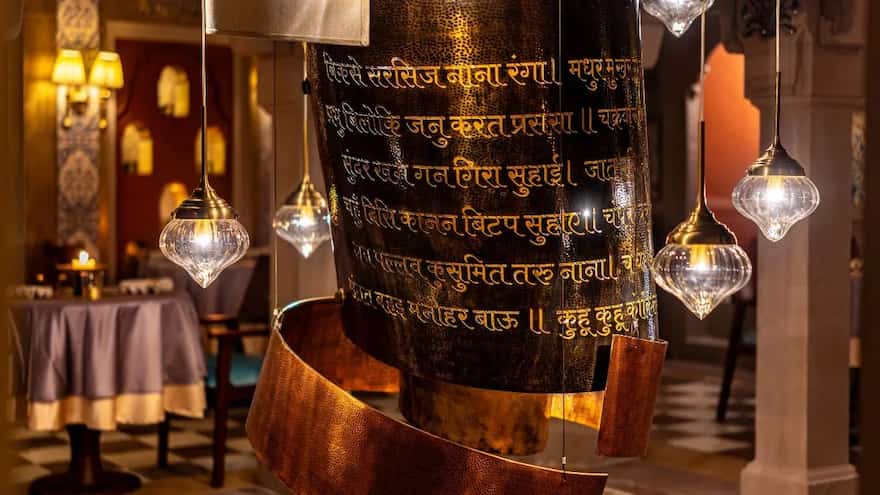 बिकसे सरसिज नाना रंगा। मधुर मुख
प्रभु बिलोकि जनु करत प्रसंसा॥ चक्र
सुंदर खग गन गिरा सुहाई। जात
चहुँ दिसि कानन बिटप सुहाए॥ चं
नव पल्लव कुसुमित तरु नाना। चं
संतत बहइ मनोहर बाऊ॥ कुहू कुहू कोकि